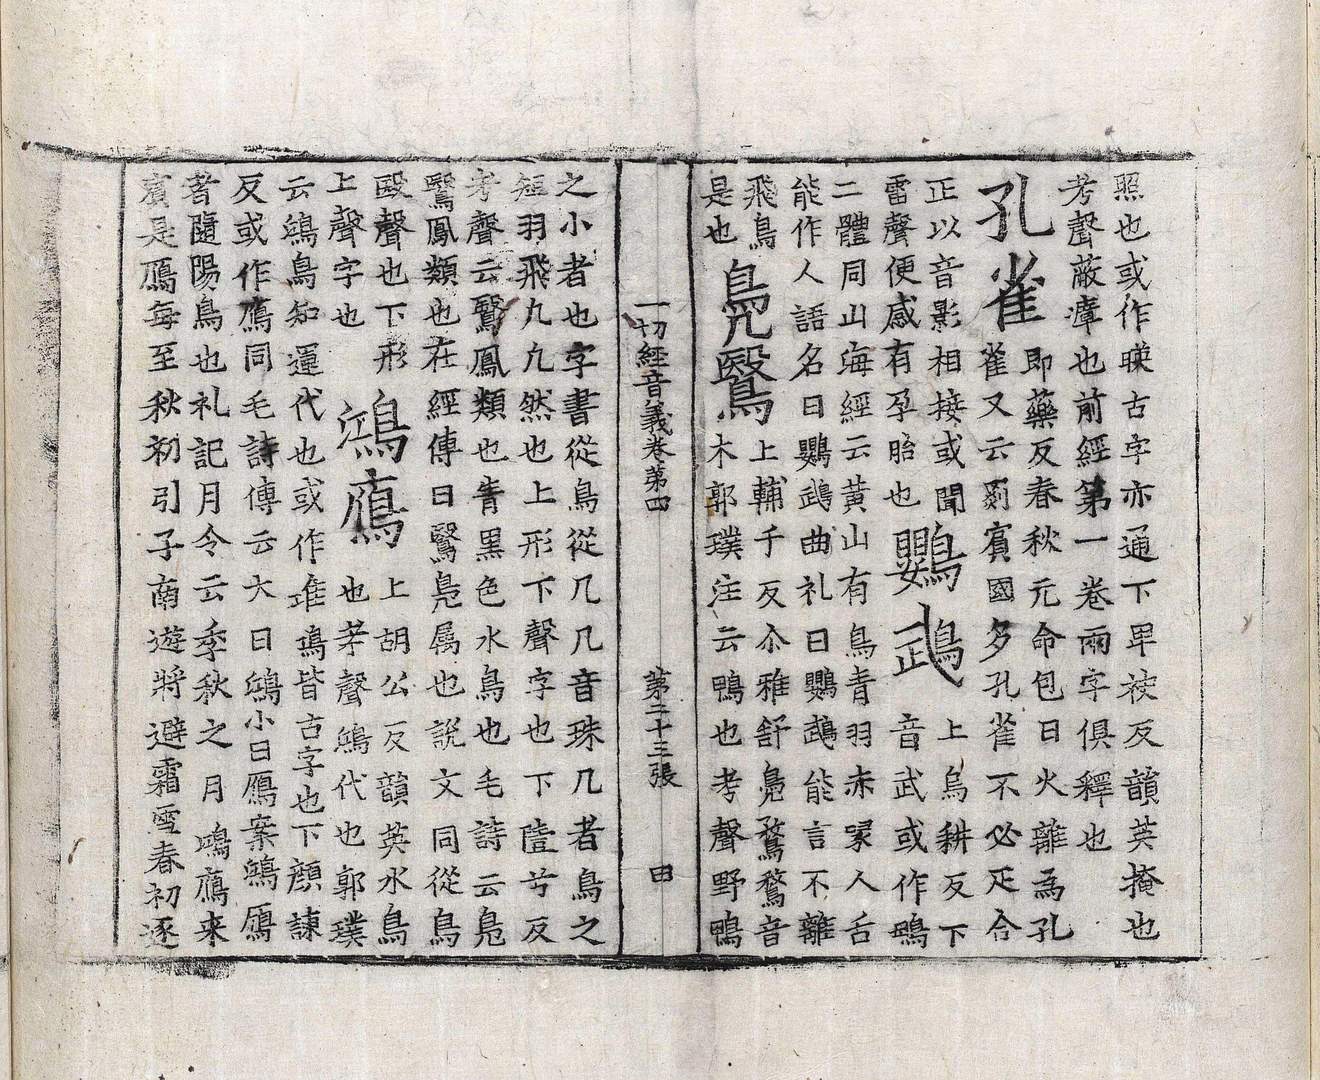 照也或作暎古字亦通下卑被反韻英掩也
考聲蔽瘴也前經第一卷兩字俱釋也
孔雀
即藥反春秋元命包曰火離爲孔
雀又云罽賓國多孔雀不必疋合
正以音影相接或聞
雷聲便感有孕胎也
鸚䳇
上烏耕反下
音武或作鵡
二體同山海經云黃山有鳥青羽赤㖵人舌
能作人語名曰鸚䳇曲礼曰鸚䳇能言不離
飛鳥
是也
鳧鷖
上輔于反尒雅舒鳧鶩鶩音
木郭璞注云鴨也考聲野鴨
一切經音義卷第四 第二十三張 田
之小者也字書從鳥從几几音珠几者鳥之
短羽飛九九然也上形下聲字也下壹兮反
考聲云鷖鳳類也青黑色水鳥也毛詩云鳧
鷖鳳類也在經傳曰鷖鳧属也說文同從鳥
殹聲也下形
上聲字也
鴻鴈
上胡公反韻英水鳥
也考聲鴻代也郭璞
云鴻鳥知運代也或作䧺鳿皆古字也下顔諫
反或作鴈同毛詩傳云大曰鴻小曰鴈案鴻鴈
者隨陽鳥也礼記月令云季秋之月鴻鴈来
賓是鴈每至秋初引子南遊將避霜雪春初逐